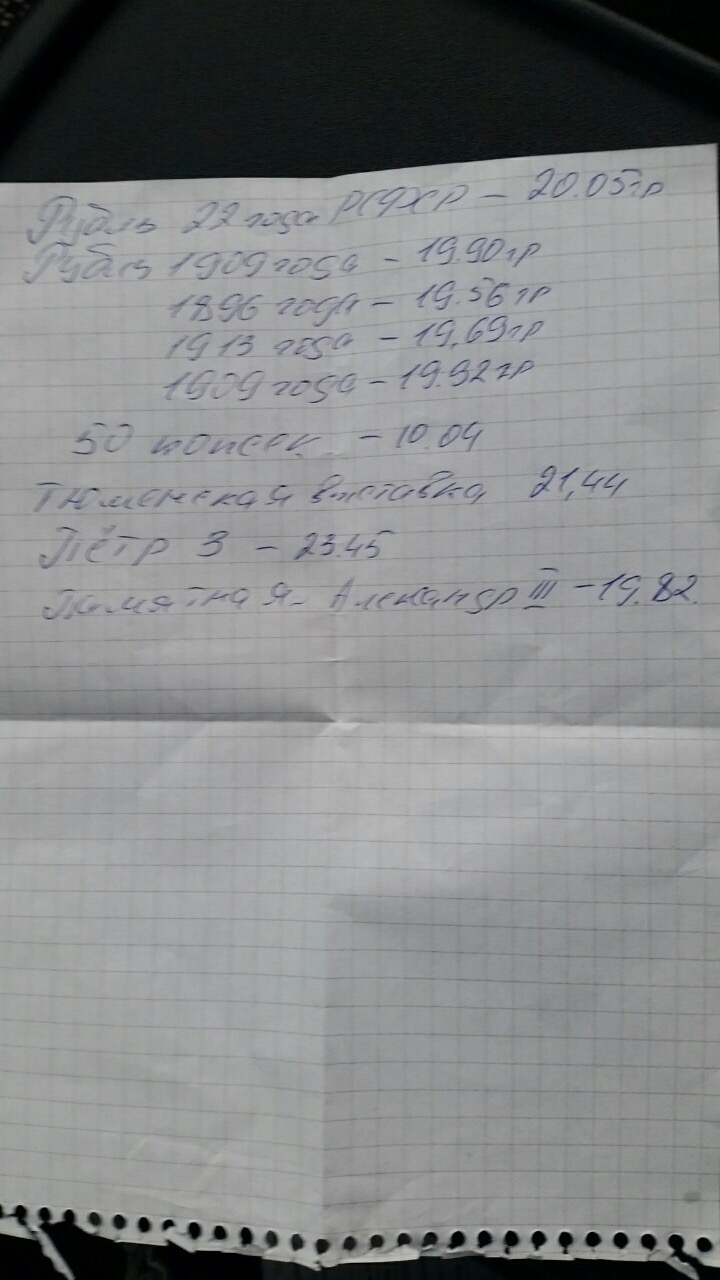 Рубль 22 года РСФСР - 20.05гр
Рубль 1909 года - 19.90гр
1896 года - 19.56 гр
1913 года - 19,69гр
1909 года - 19.92 гр
50 копеек - 10.04
Тюменская выставка 21,44
Пётр 3 - 23.45
Памятная - Александр III - 19.82.